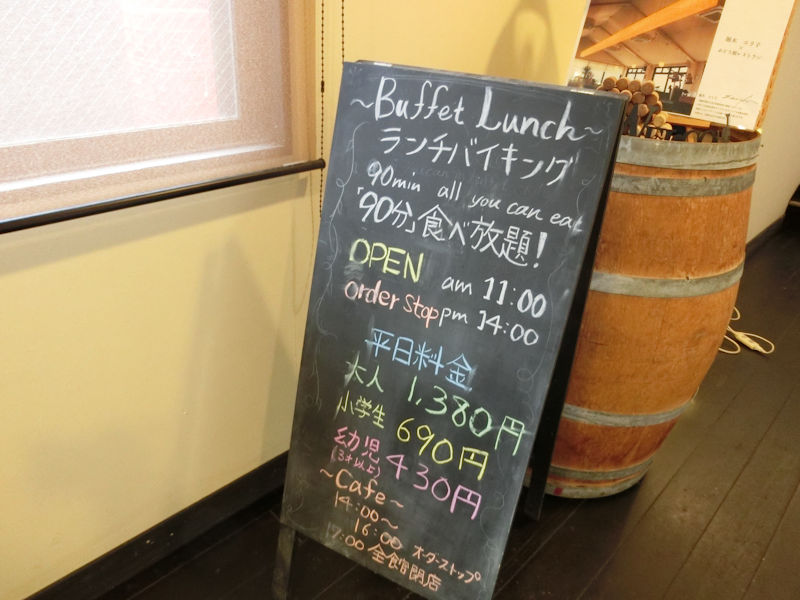 ~Buffet Lunch~
ランチバイキング
90min all you can eat
「90分」食べ放題!
OPEN am 11:00
order Stop pm 14:00
平日料金
大人 1,380円
小学生 690円
幼児 430円
(3才以上)
~Cafe~
14:00~
16:00 オーダーストップ
17:00 全館閉店